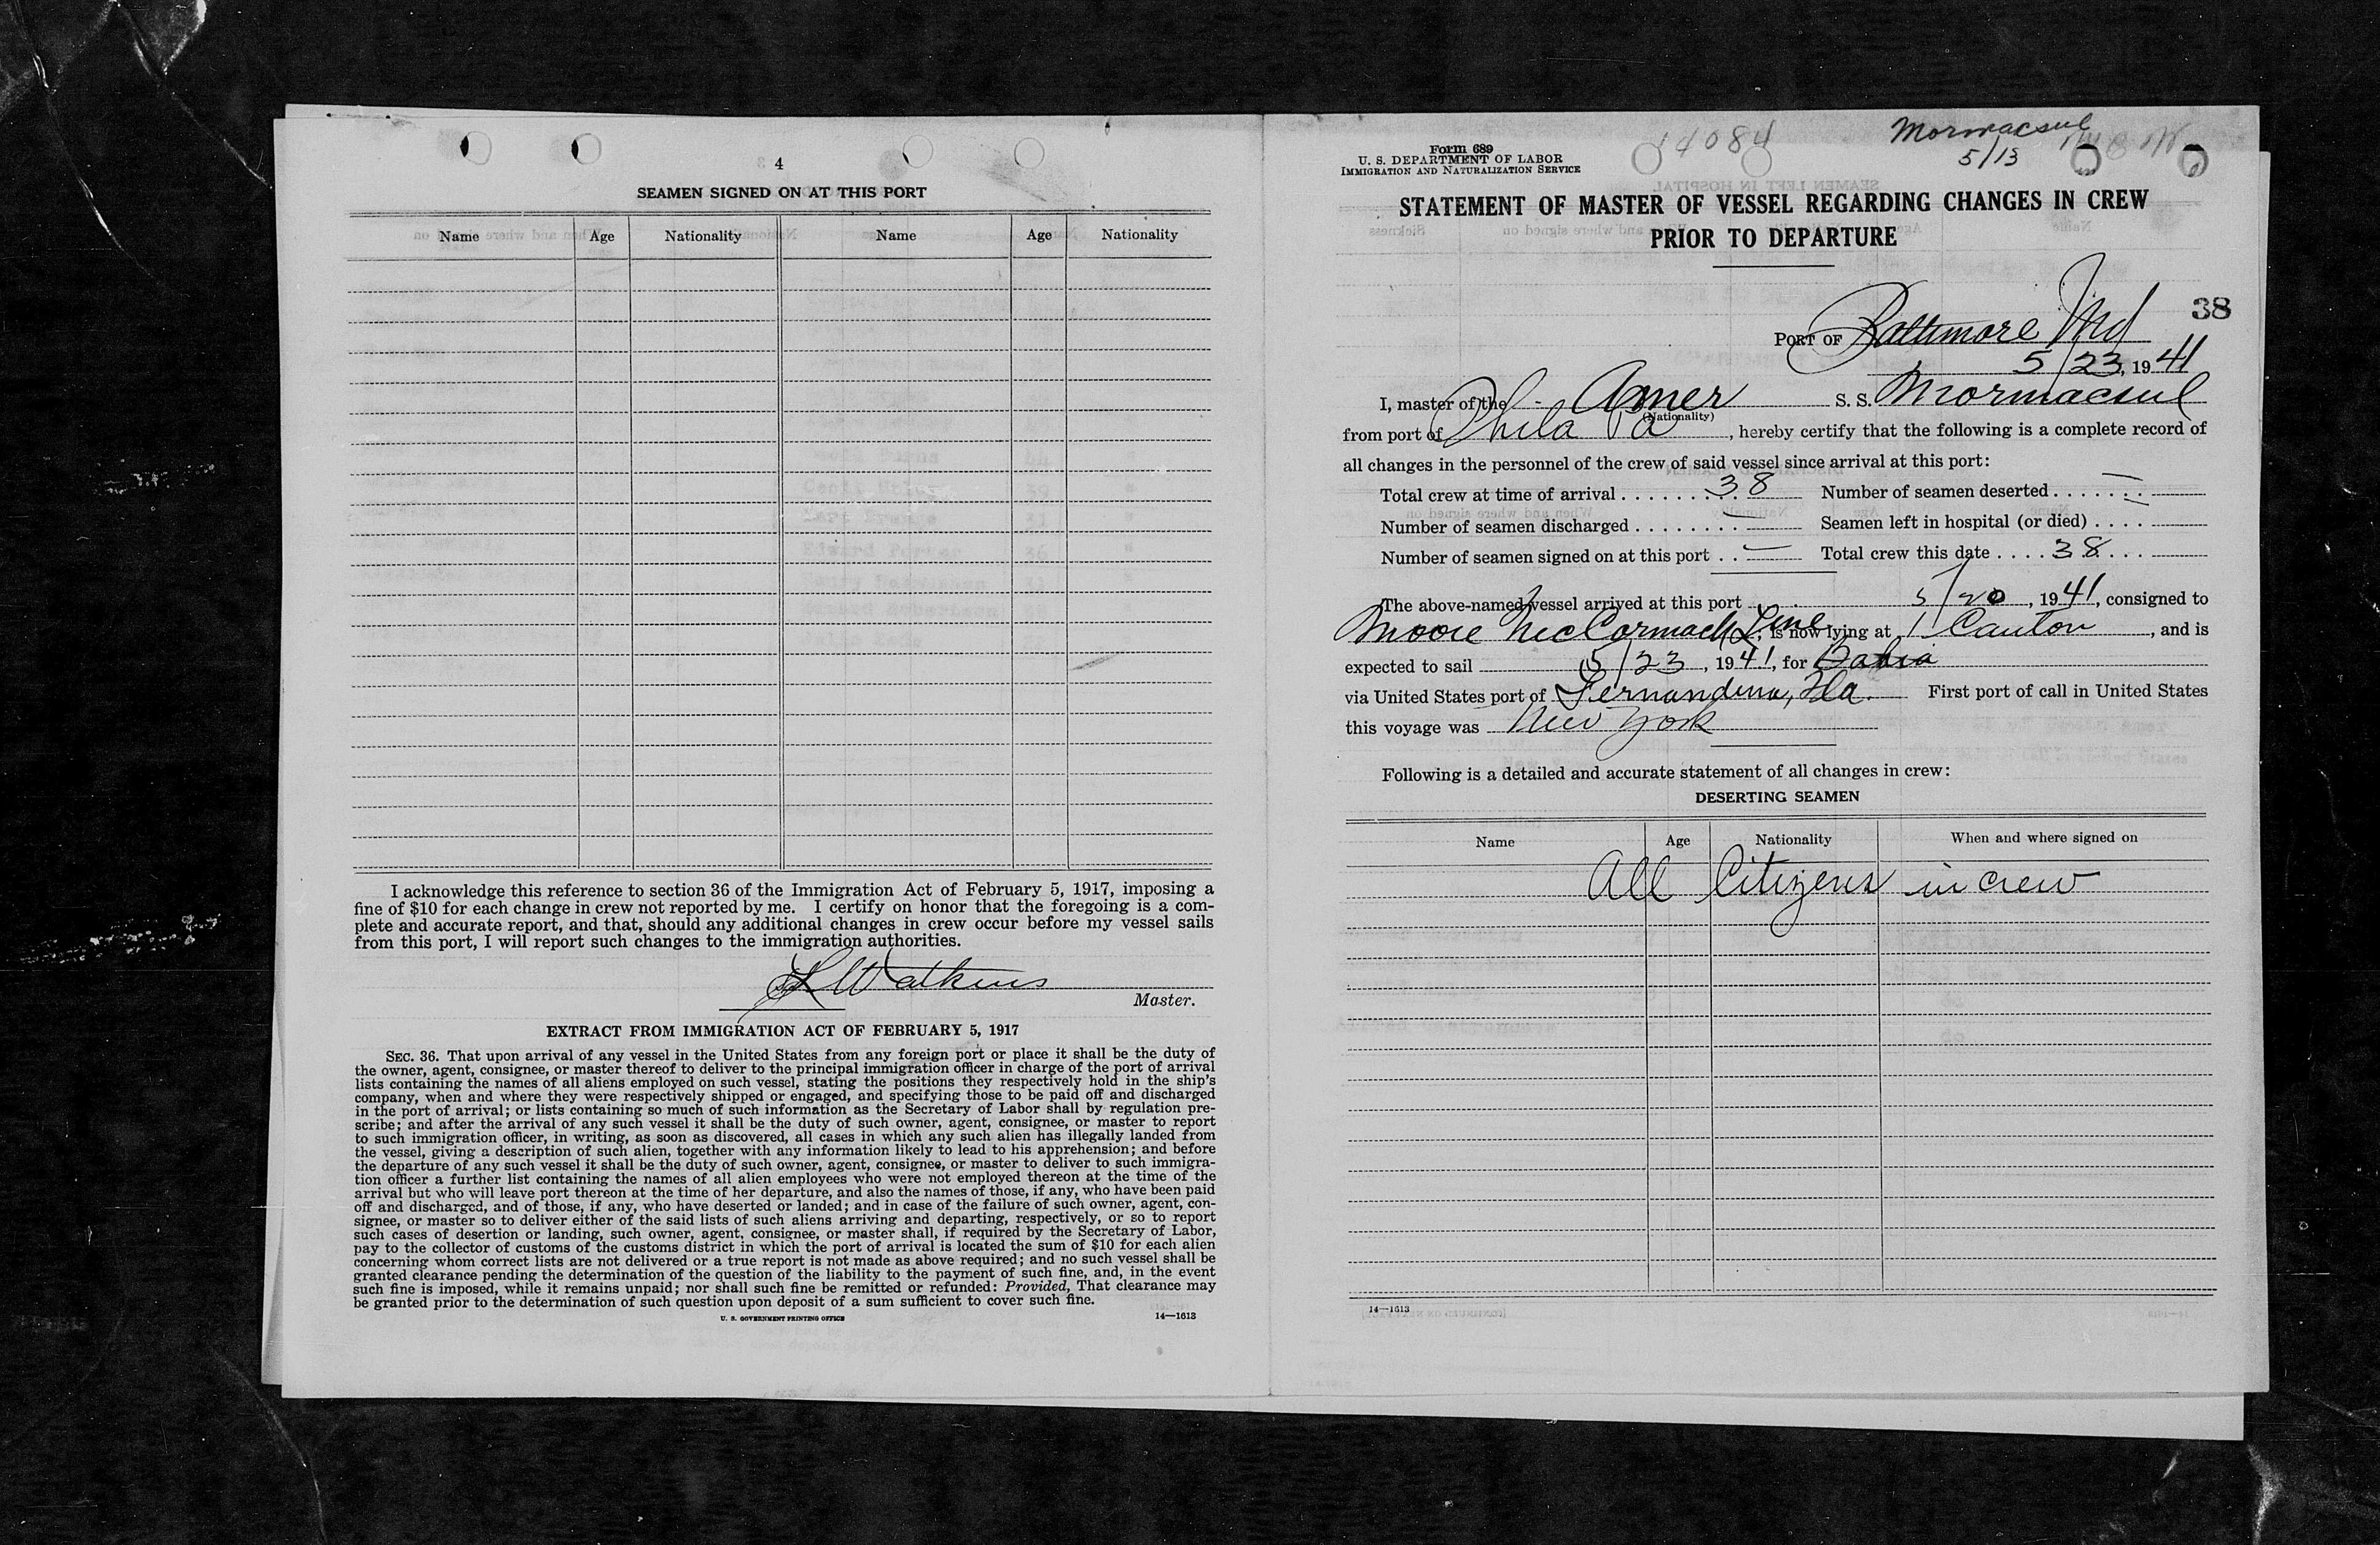 4
SEAMEN SIGNED ON AT THIS PORT
Name Age Nationality Name Age Nationality
I acknowledge this reference to section 36 of the Immigration Act of February 5, 1917, imposing a
fine of $10 for each change in crew not reported by me. I certify on honor that the foregoing is a com-
plete and accurate report, and that, should any additional changes in crew occur before my vessel sails
from this port, I will report such changes to the immigration authorities.
Watkins
Master.
EXTRACT FROM IMMIGRATION ACT OF FEBRUARY 5, 1917
SEC. 36. That upon arrival of any vessel in the United States from any foreign port or place it shall be the duty of
the owner, agent, consignee, or master thereof to deliver to the principal immigration officer in charge of the port of arrival
lists containing the names of all aliens employed on such vessel, stating the positions they respectively hold in the ship's
company, when and where they were respectively shipped or engaged, and specifying those to be paid off and discharged
in the port of arrival; or lists containing so much of such information as the Secretary of Labor shall by regulation pre-
scribe; and after the arrival of any such vessel it shall be the duty of such owner, agent, consignee, or master to report
to such immigration officer, in writing, as soon as discovered, all cases in which any such alien has illegally landed from
the vessel, giving a description of such alien, together with any information likely to lead to his apprehension; and before
the departure of any such vessel it shall be the duty of such owner, agent, consignee, or master to deliver to such immigra-
tion officer a further list containing the names of all alien employees who were not employed thereon at the time of the
arrival but who will leave port thereon at the time of her departure, and also the names of those, if any, who have been paid
off and discharged, and of those, if any, who have deserted or landed; and in case of the failure of such owner, agent, con-
signee, or master so to deliver either of the said lists of such aliens arriving and departing, respectively, or so to report
such cases of desertion or landing, such owner, agent, consignee, or master shall, if required by the Secretary of Labor,
pay to the collector of customs of the customs district in which the port of arrival is located the sum of $10 for each alien
concerning whom correct lists are not delivered or a true report is not made as above required; and no such vessel shall be
granted clearance pending the determination of the question of the liability to the payment of such fine, and, in the event
such fine is imposed, while it remains unpaid; nor shall such fine be remitted or refunded: Provided, That clearance may
be granted prior to the determination of such question upon deposit of a sum sufficient to cover such fine.
U. S. GOVERNMENT PRINTING OFFICE 14—1613
14084 Mormacsul
5/13
Form 689
U. S. DEPARTMENT OF LABOR
IMMIGRATION AND NATURALIZATION SERVICE
STATEMENT OF MASTER OF VESSEL REGARDING CHANGES IN CREW
PRIOR TO DEPARTURE
38
PORT OF Baltimore Md
5/23, 1941
I, master of the Amer S. S. Mormacsul
(Nationality)
from port of Phila Pa, hereby certify that the following is a complete record of
all changes in the personnel of the crew of said vessel since arrival at this port:
Total crew at time of arrival 38 Number of seamen deserted —
Number of seamen discharged — Seamen left in hospital (or died) —
Number of seamen signed on at this port — Total crew this date 38
The above-named vessel arrived at this port 5/20, 1941, consigned to
Moore McCormack Line, is now lying at 1 Canton, and is
expected to sail 5/23, 1941, for Bahia
via United States port of Fernandina, Fla. First port of call in United States
this voyage was New York
Following is a detailed and accurate statement of all changes in crew:
DESERTING SEAMEN
Name Age Nationality When and where signed on
All Citizens in crew
14—1613